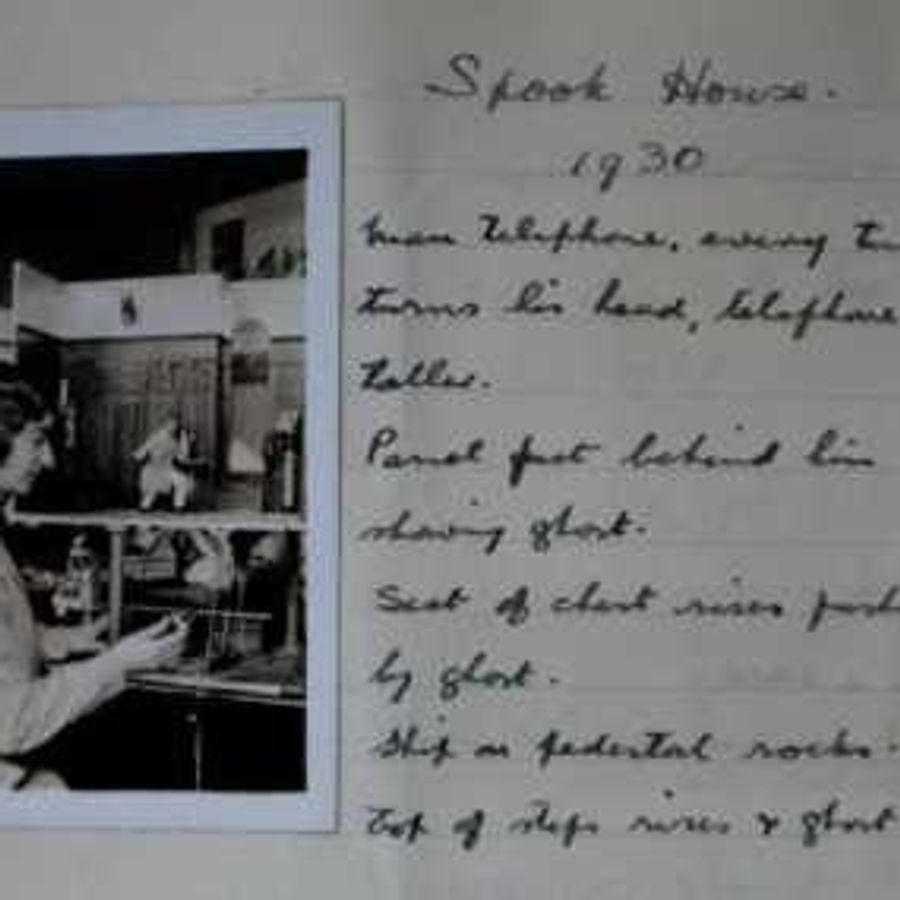 Spook House.
1930
Man telephone, every t
turns his head, telephone
taller.
Panel fast behind him
showing ghost.
Seat of chest rises push
by ghost.
Ship on pedestal rocks.
Top of steps rises & ghost